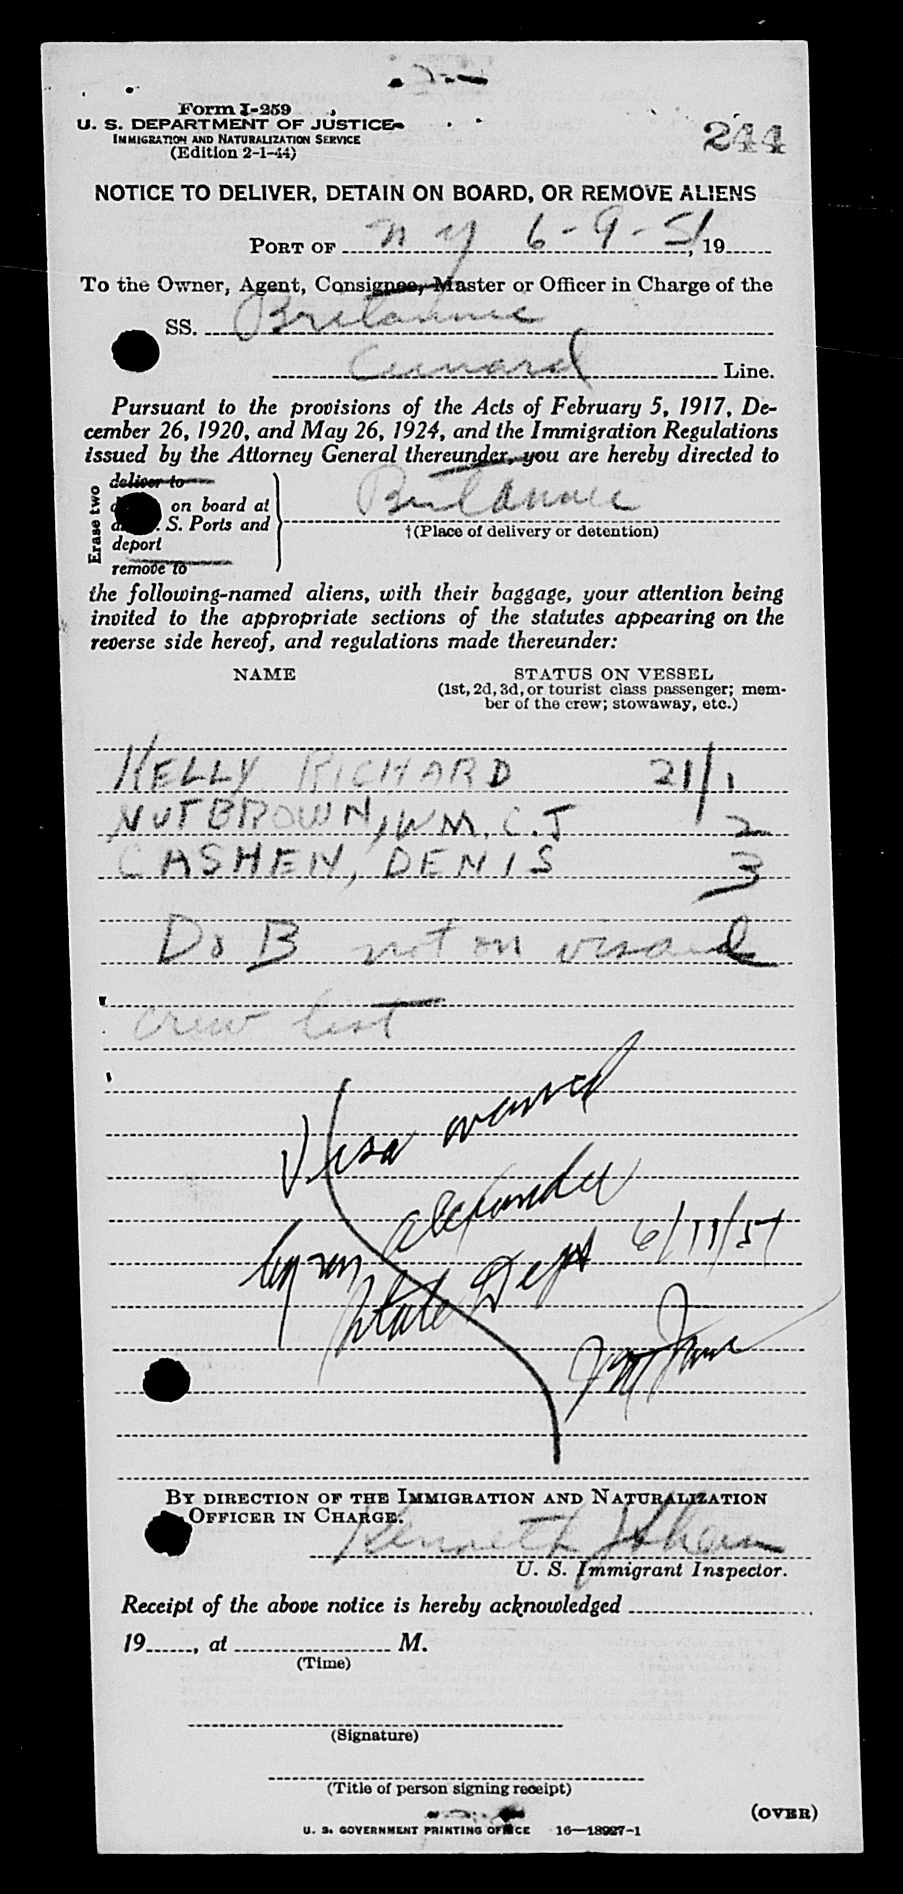 Form I-259
U. S. DEPARTMENT OF JUSTICE
IMMIGRATION AND NATURALIZATION SERVICE
(Edition 2-1-44)
244
NOTICE TO DELIVER, DETAIN ON BOARD, OR REMOVE ALIENS
PORT OF N Y 6-9-51, 19
To the Owner, Agent, Consignee, Master or Officer in Charge of the
SS. Britannic
Cunard Line.
Pursuant to the provisions of the Acts of February 5, 1917, De-
cember 26, 1920, and May 26, 1924, and the Immigration Regulations
issued by the Attorney General thereunder, you are hereby directed to
Erase two
deliver to
on board at
S. Ports and
deport
remove to
Britannic
†(Place of delivery or detention)
the following-named aliens, with their baggage, your attention being
invited to the appropriate sections of the statutes appearing on the
reverse side hereof, and regulations made thereunder:
NAME STATUS ON VESSEL
(1st, 2d, 3d, or tourist class passenger; mem-
ber of the crew; stowaway, etc.)
KELLY RICHARD 21/1
NUTBROWN, WM. C. J 2
CASHEN, DENIS 3
D o B not on visaed
crew list
Visa waived
Alexander
State Dept 6/11/51
BY DIRECTION OF THE IMMIGRATION AND NATURALIZATION
OFFICER IN CHARGE.
Kenneth
U. S. Immigrant Inspector.
Receipt of the above notice is hereby acknowledged
19, at M.
(Time)
(Signature)
(Title of person signing receipt)
(OVER)
U. S. GOVERNMENT PRINTING OFFICE 16—18927-1